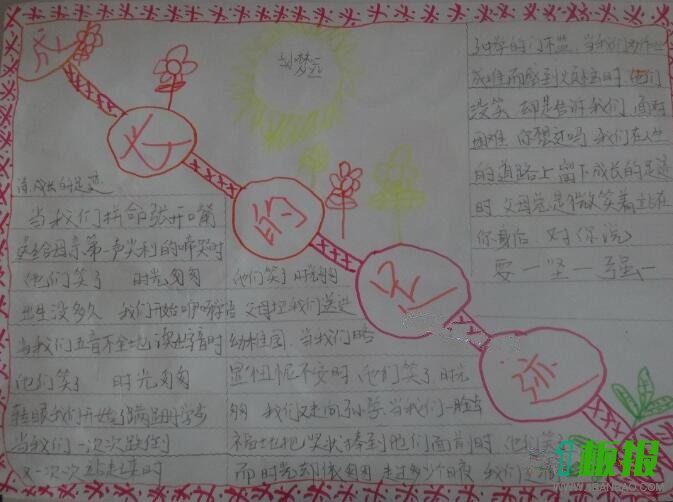 成长的足迹
刘梦云
诗:成长的足迹
当我们拼命张开嘴
送给母亲第一声尖利的啼哭时
他们笑了 时光匆匆
出生没多久 我们开始咿呀学语
当我们五音不全地 时
他们笑了 时光匆匆
转眼我们开始了蹒跚学步
当我们一次次跌倒
又一次次站起来时
他们笑了 时光匆匆
父母把我们送进
幼稚园 当我们略
显忸怩不安时 他们笑了 时光
匆 我们又走向小学 当我们一脸幸
福地把奖状捧到他们面前时 他们笑了
而时光却像匆匆 走过多少个日夜 我们
中学的门槛 当我们为作业
成堆而感到 时 他们
没笑 却是告诉我们 面对
困难 你想过吗 我们在人生
的道路上 留下成长的足迹
时 父母总是微笑着站在
你身后 对你说
要一坚一强一
板报